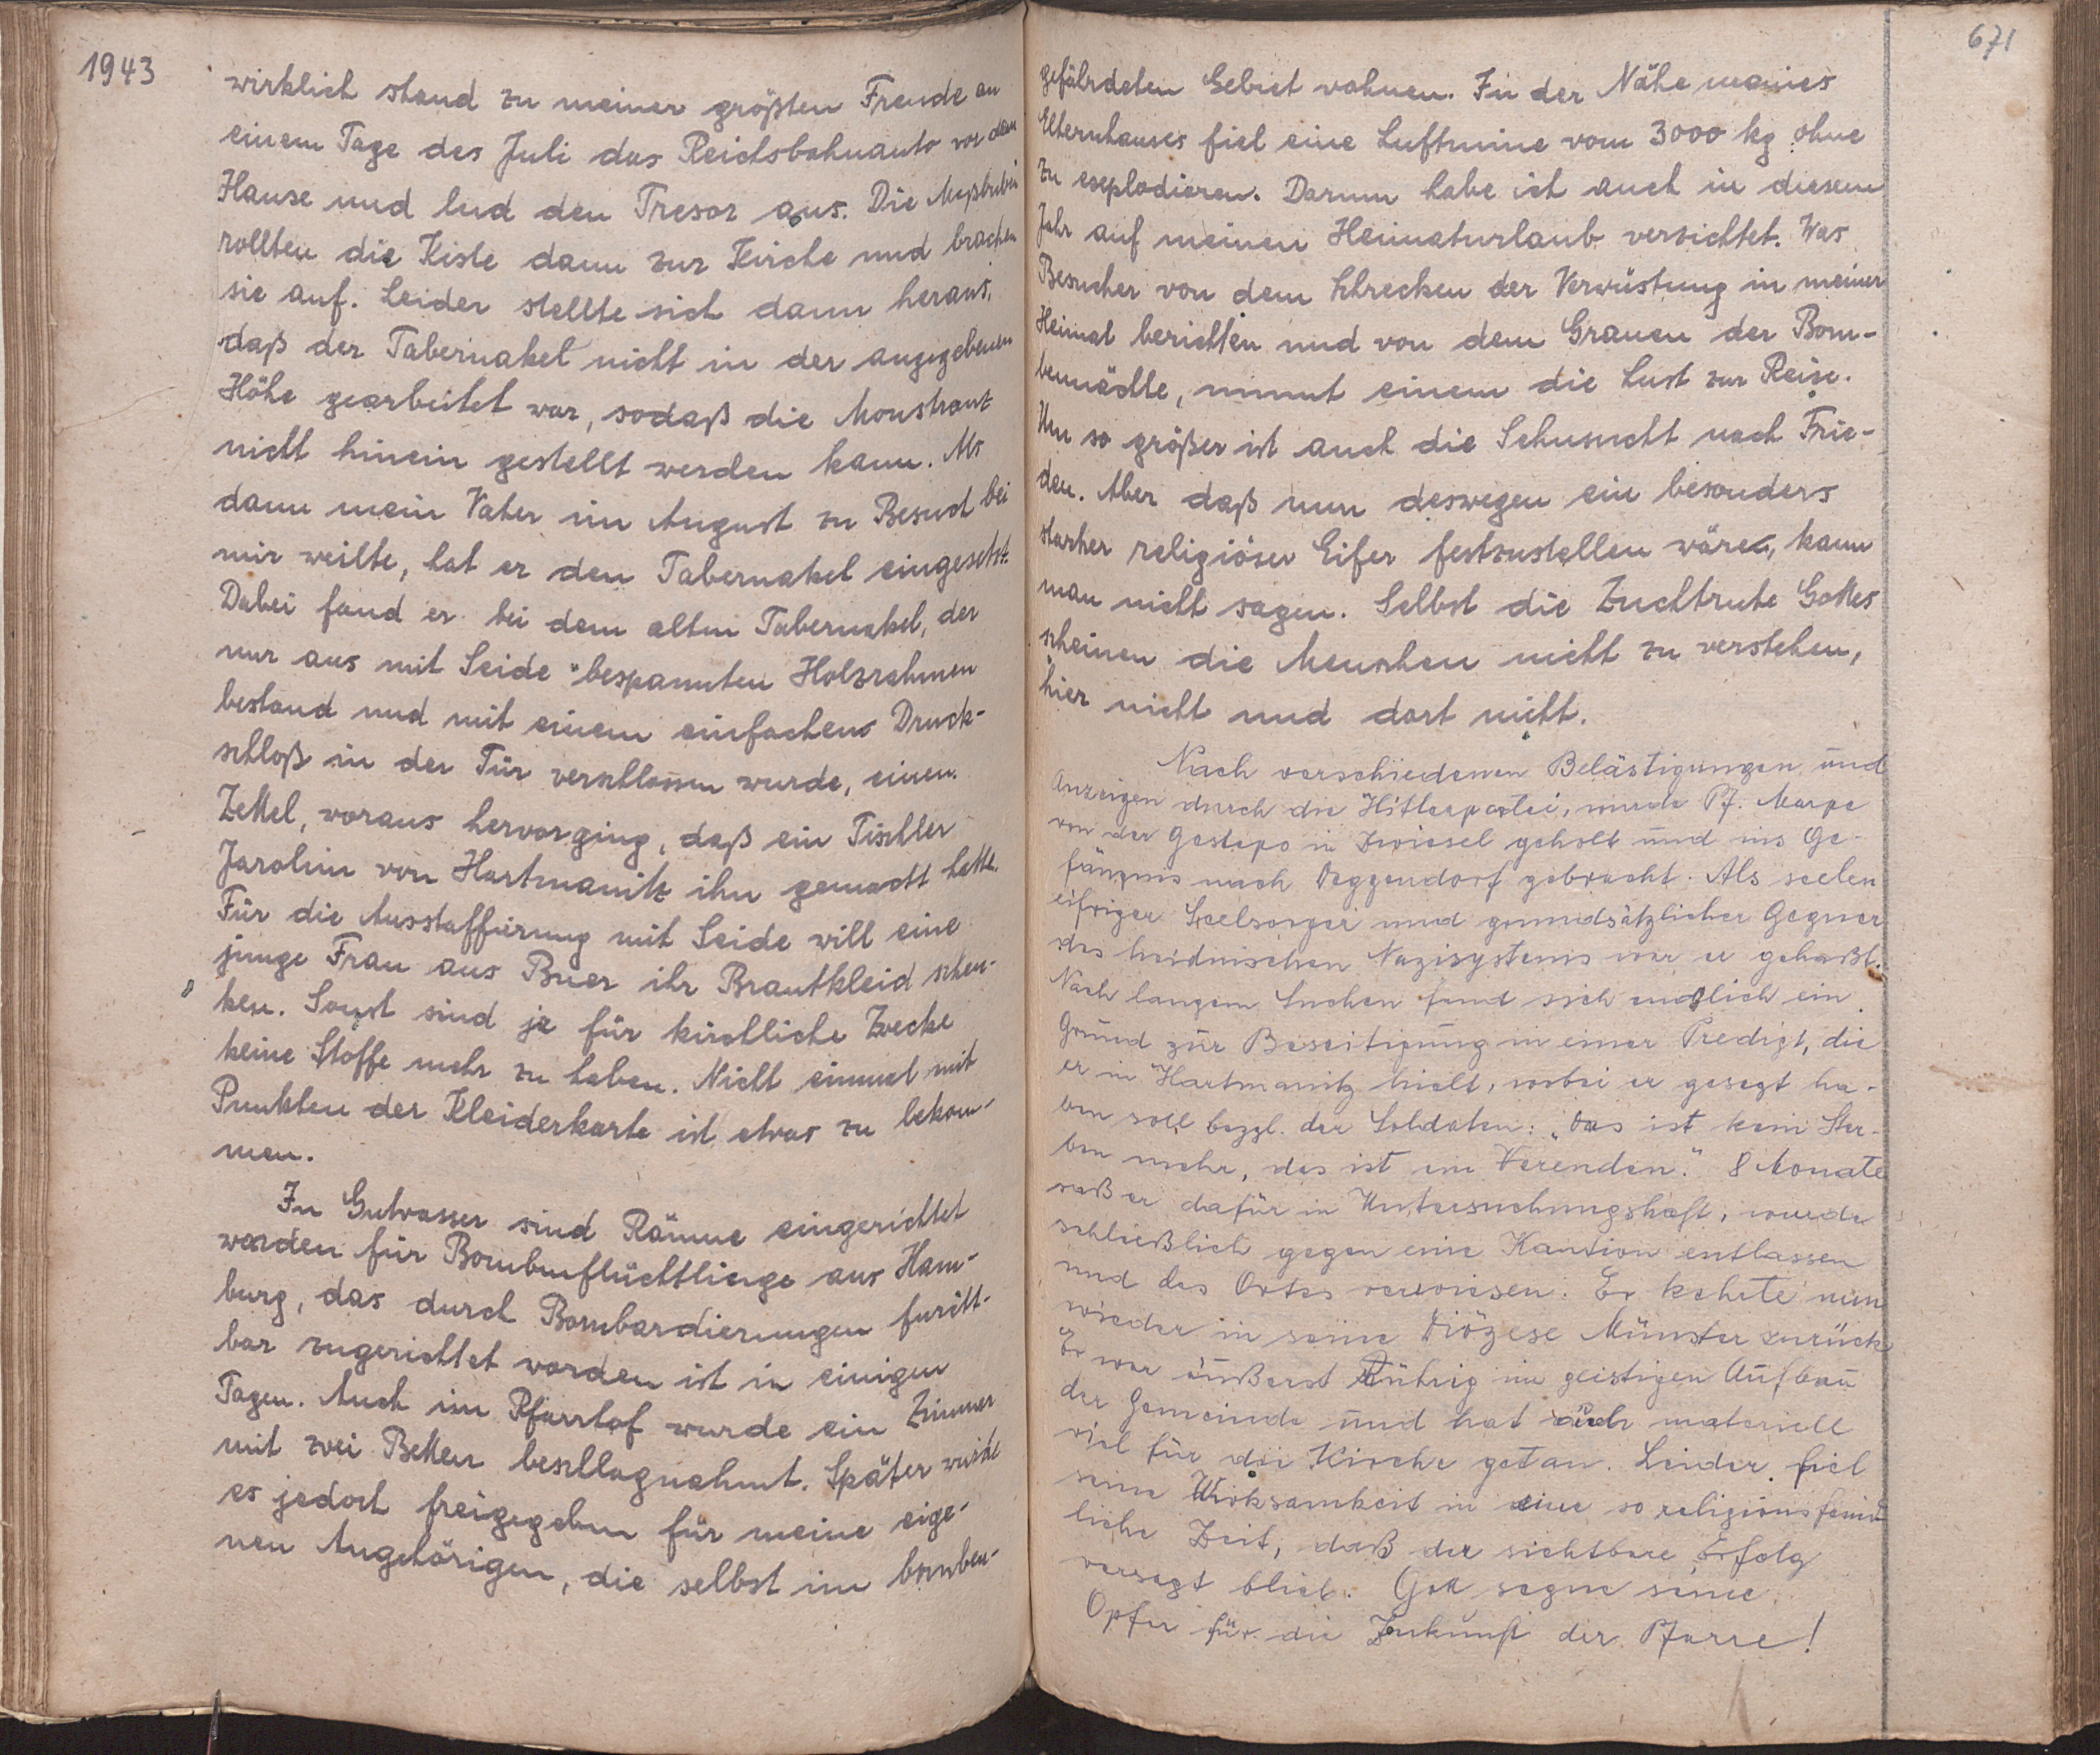 1943
wirklich stand zu meiner größten Freude an
einem Tage des Juli das Reichsbahnauto vor dem
Hause und lud den Tresor aus. Die Meßbuben
rollten die Kiste dann zur Kirche und brachen
sie auf. Leider stellte sich dann heraus,
daß der Tabernakel nicht in der angegebenen
Höhe gearbeitet war, sodaß die Monstranz
nicht hinein gestellt werden kann. Als
dann mein Vater im August zu Besuch bei
mir weilte, hat er den Tabernakel eingesetzt.
Dabei fand er bei dem alten Tabernakel, der
nur aus mit Seide bespannten Holzrahmen
bestand und mit einem einfachens Druck-
schloß in der Tür verschlossen wurde, einen
Zettel, woraus hervorging, daß ein Tischler
Jarolim von Hartmanitz ihn gemacht hatte.
Für die Ausstaffierung mit Seide will eine
junge Frau aus Buer ihr Brautkleid schen-
ken. Sonst sind ja für kirchliche Zwecke
keine Stoffe mehr zu haben. Nicht einmal mit
Punkten der Kleiderkarte ist etwas zu bekom-
men.
In Gutwasser sind Räume eingerichtet
worden für Bombenflüchtlinge aus Ham-
burg, das durch Bombardierungen furcht-
bar zugerichtet worden ist in einigen
Tagen. Auch im Pfarrhof wurde ein Zimmer
mit zwei Betten beschlagnahmt. Später wurde
es jedoch freigegeben für meine eige-
nen Angehörigen, die selbst im bomben-
671
gefährdeten Gebiet wohnen. In der Nähe meines
Elternhauses fiel eine Luftmine vom 3000 kg ohne
zu explodieren. Darum habe ich auch in diesem
Jahr auf meinen Heimaturlaub verzichtet. Was
Besucher von dem Schrecken der Verwüstung in meiner
Heimat berichten und von dem Grauen der Bom-
bennächte, nimmt einem die Lust zur Reise.
Um so größer ist auch die Sehnsucht nach Frie-
den. Aber daß nun deswegen ein besonders
starker religiöser Eifer festzustellen wäre, kann
man nicht sagen. Selbst die Zuchtrute Gottes
scheinen die Menschen nicht zu verstehen,
hier nicht und dort nicht.
Nach verschiedenen Belästigungen und
Anzeigen durch die Hitlerpartei, wurde Pf. Marpe
von der Gestapo in Zwiesel geholt und ins Ge-
fängnis nach Deggendorf gebracht. Als seelen
eifriger Seelsorger und grundsätzlicher Gegner
des heidnischen Nazisystems war er gehaßt.
Nach langem Suchen fand sich endlich ein
Grund zur Beseitigung in einer Predigt, die
er in Hartmanitz hielt, wobei er gesagt ha-
ben soll bezgl. der Soldaten: „Das ist kein Ster-
ben mehr, das ist ein Verenden." 8 Monate
saß er dafür in Untersuchungshaft, wurde
schließlich gegen eine Kaution entlassen
und des Ortes verwiesen. Er kehrte nun
wieder in seine Diözese Münster zurück
Er war äußerst Rührig im geistigen Aufbau
der Gemeinde und hat auch materiell
viel für die Kirche getan. Leider fiel
seine Wirksamkeit in eine so religionsfeind
liche Zeit, daß der sichtbare Erfolg
versagt blieb. Gott segne seine
Opfer für die Zukunft der Pfarre!